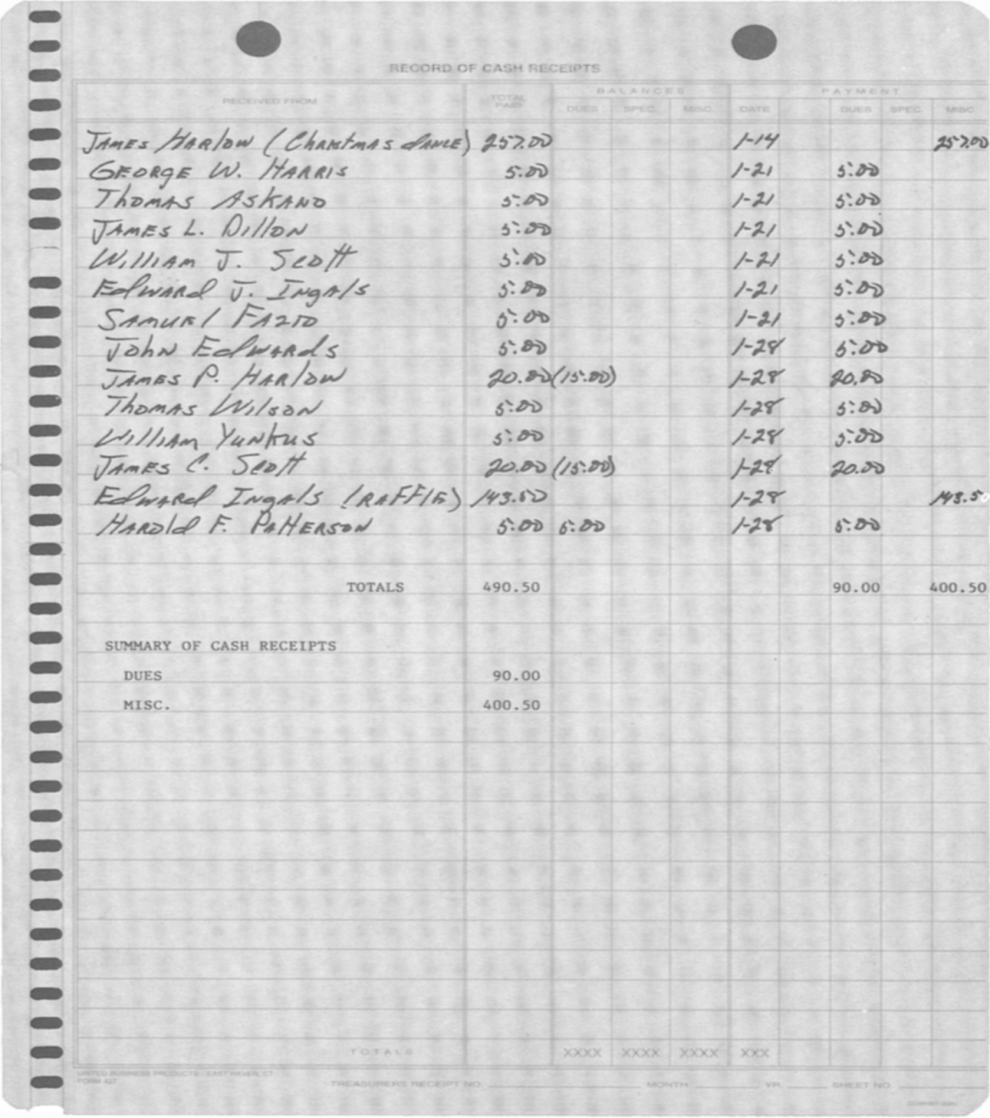 RECORD OF CASH RECEIPTS
BALANCES PAYMENT
RECEIVED FROM TOTAL PAID DUES SPEC. MISC. DATE DUES SPEC. MISC
JAMES HARLOW (CHRISTMAS DANCE) 257.00 1-14 257.00
GEORGE W. HARRIS 5.00 1-21 5.00
THOMAS ASKAND 5.00 1-21 5.00
JAMES L. DILLON 5.00 1-21 5.00
WILLIAM J. SCOTT 5.00 1-21 5.00
EDWARD J. INGALS 5.00 1-21 5.00
SAMUEL FAZIO 5.00 1-21 5.00
JOHN EDWARDS 5.00 1-28 5.00
JAMES P. HARLOW 20.00 (15.00) 1-28 20.00
THOMAS WILSON 5.00 1-28 5.00
WILLIAM YUNKUS 5.00 1-28 5.00
JAMES C. SCOTT 20.00 (15.00) 1-28 20.00
EDWARD INGALS (RAFFLE) 143.50 1-28 143.50
HAROLD F. PATTERSON 5.00 5.00 1-28 5.00
TOTALS 490.50 90.00 400.50
SUMMARY OF CASH RECEIPTS
DUES 90.00
MISC. 400.50
TOTALS XXXX XXXX XXXX XXX
UNITED BUSINESS PRODUCTS - EAST HAVEN, CT
FORM 427
TREASURERS RECEIPT NO. MONTH YR. SHEET NO.